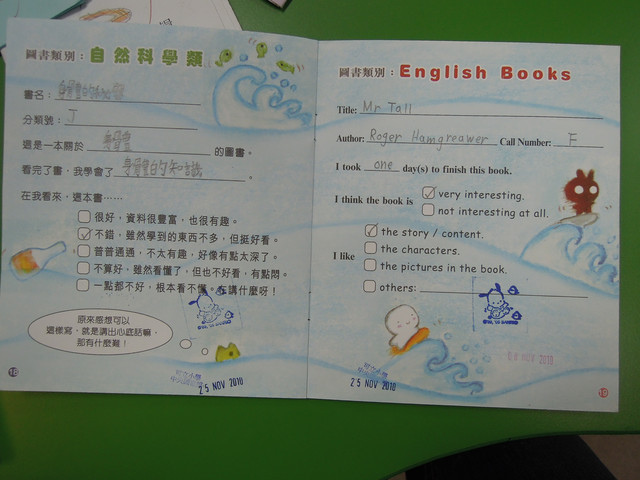 圖書類別：自然科學類
書名：身體的知識
分類號：J
這是一本關於 身體 的圖書。
看完了書，我學會了 身體的知識 。
在我看來，這本書……
很好，資料很豐富，也很有趣。
不錯，雖然學到的東西不多，但挺好看。
普普通通，不太有趣，好像有點太深了。
不算好，雖然看懂了，但也不好看，有點悶。
一點都不好，根本看不懂。在講什麼呀！
原來感想可以
這樣寫，就是講出心底話嘛，
那有什麼難！
25 NOV 2010
18
圖書類別：English Books
Title: Mr Tall
Author: Roger Hamgreawer Call Number: F
I took one day(s) to finish this book.
I think the book is
very interesting.
not interesting at all.
I like
the story / content.
the characters.
the pictures in the book.
others:
25 NOV 2010
NOV 2010
19